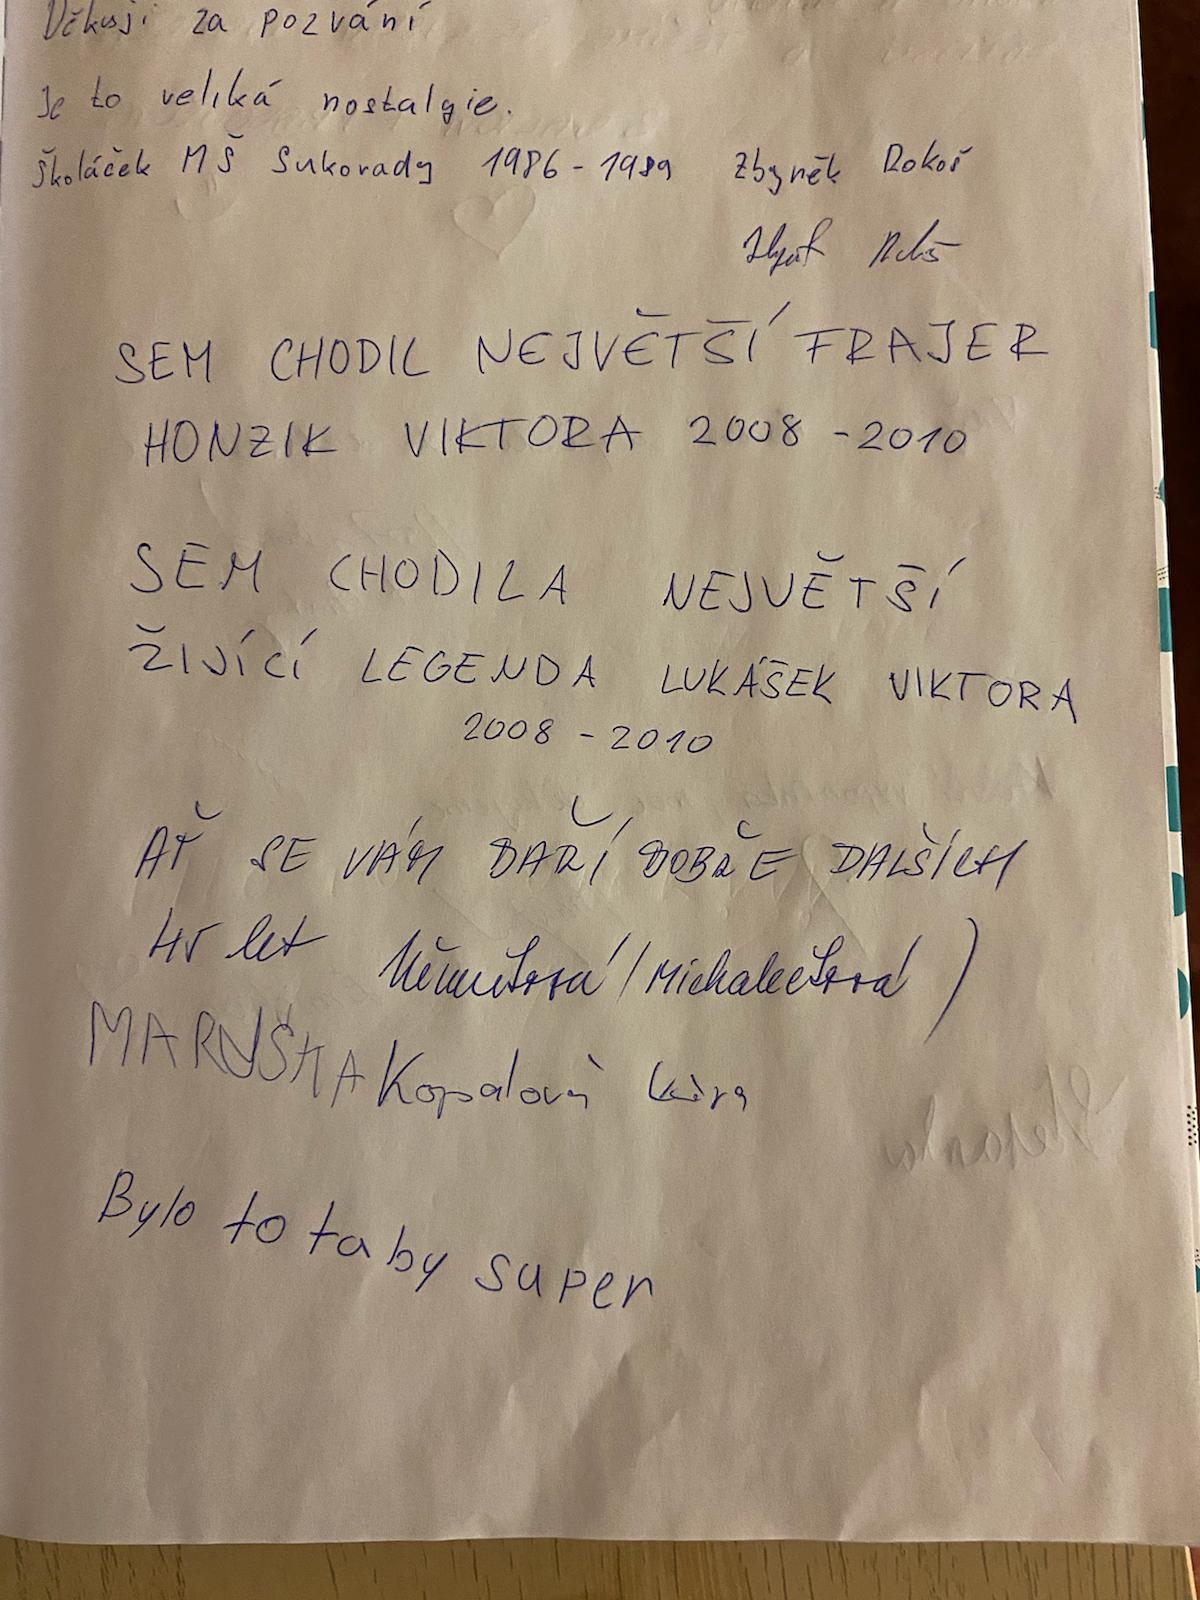 Děkuji za pozvání
Je to veliká nostalgie.
Školáček MŠ Sukorady 1986 - 1989 Zbyněk Rokoš
SEM CHODIL NEJVĚTŠÍ FRAJER
HONZIK VIKTORA 2008 - 2010
SEM CHODILA NEJVĚTŠÍ
ŽIJÍCÍ LEGENDA LUKÁŠEK VIKTORA
2008 - 2010
AŤ SE VÁM DAŘÍ DOBŘE DALŠÍCH
45 let Němečková (Michalečková)
MARUŠKA Kopalová
Bylo to taby super